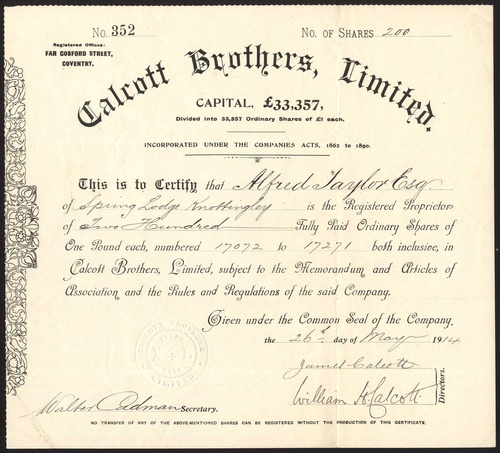 No. 352
No. OF SHARES 200
Registered Offices:
FAR GOSFORD STREET,
COVENTRY.
Calcott Brothers, Limited.
CAPITAL, £33,357,
Divided into 33,357 Ordinary Shares of £1 each.
INCORPORATED UNDER THE COMPANIES ACTS, 1862 to 1890.
This is to Certify that Alfred Taylor Esq
of Spring Lodge Knottingley is the Registered Proprietor
of Two Hundred Fully Paid Ordinary Shares of
One Pound each, numbered 17072 to 17271 both inclusive, in
Calcott Brothers, Limited, subject to the Memorandum and Articles of
Association and the Rules and Regulations of the said Company.
Given under the Common Seal of the Company.
the 26th day of May 1914
James Calcott
William H. Calcott
Directors.
Walter Cadman Secretary.
NO TRANSFER OF ANY OF THE ABOVE-MENTIONED SHARES CAN BE REGISTERED WITHOUT THE PRODUCTION OF THIS CERTIFICATE.